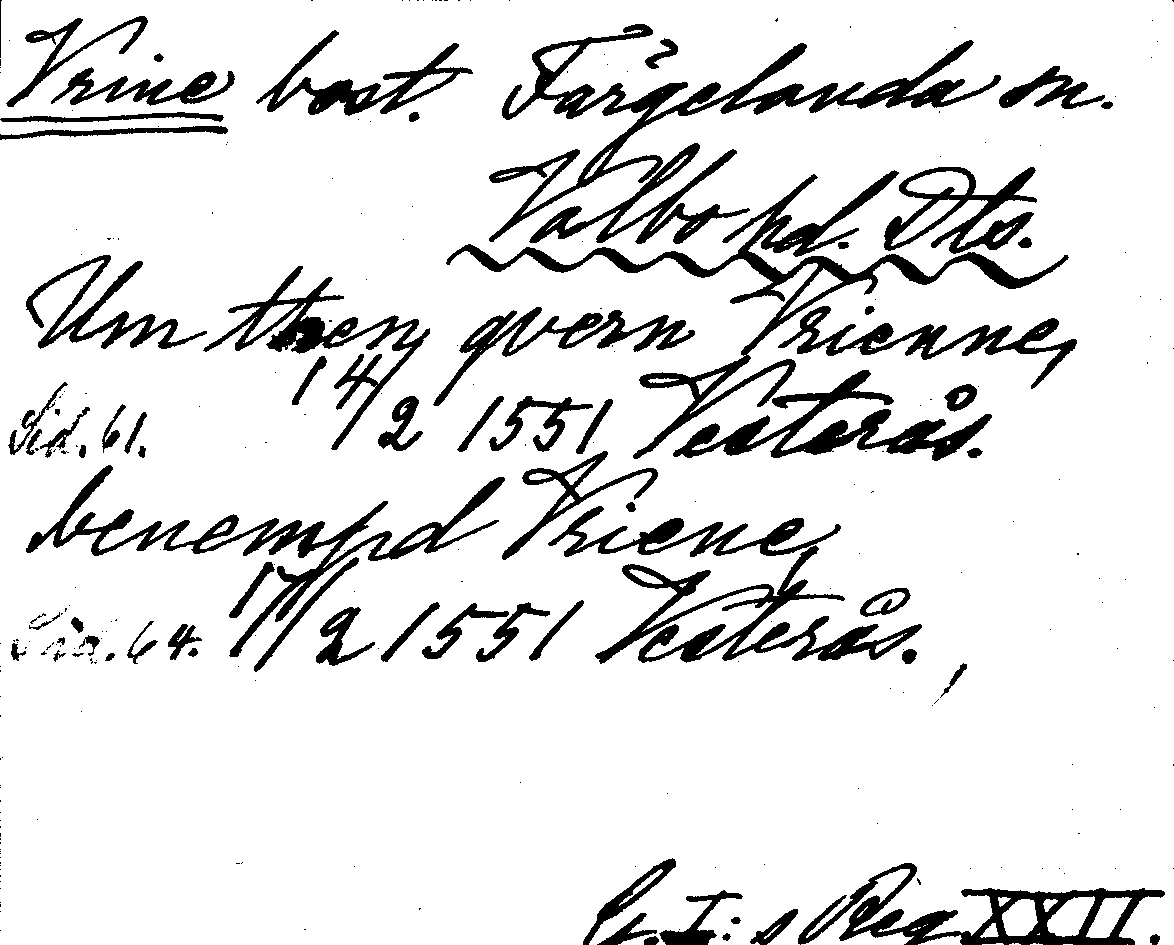 Vrine bost. Färgelanda sn.
Valbo hd. Dls.
Um then qvern Vrienne,
Sid. 61. 14/2 1551 Vesterås.
benempd Vriene,
Sid. 64. 17/2 1551 Vesterås.
G. I:s Reg. XXII.